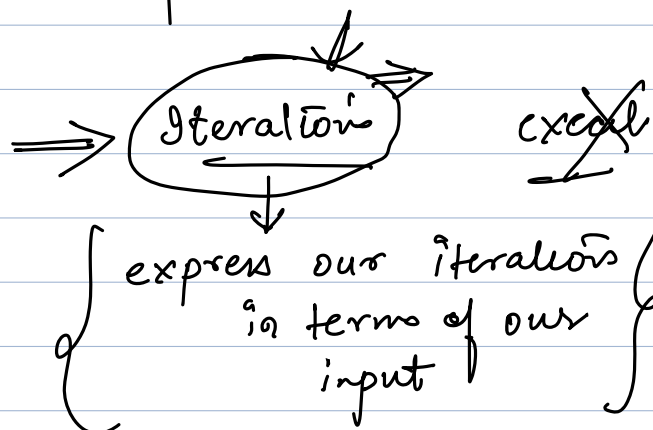 Iterations
express our iterations
in terms of our
input